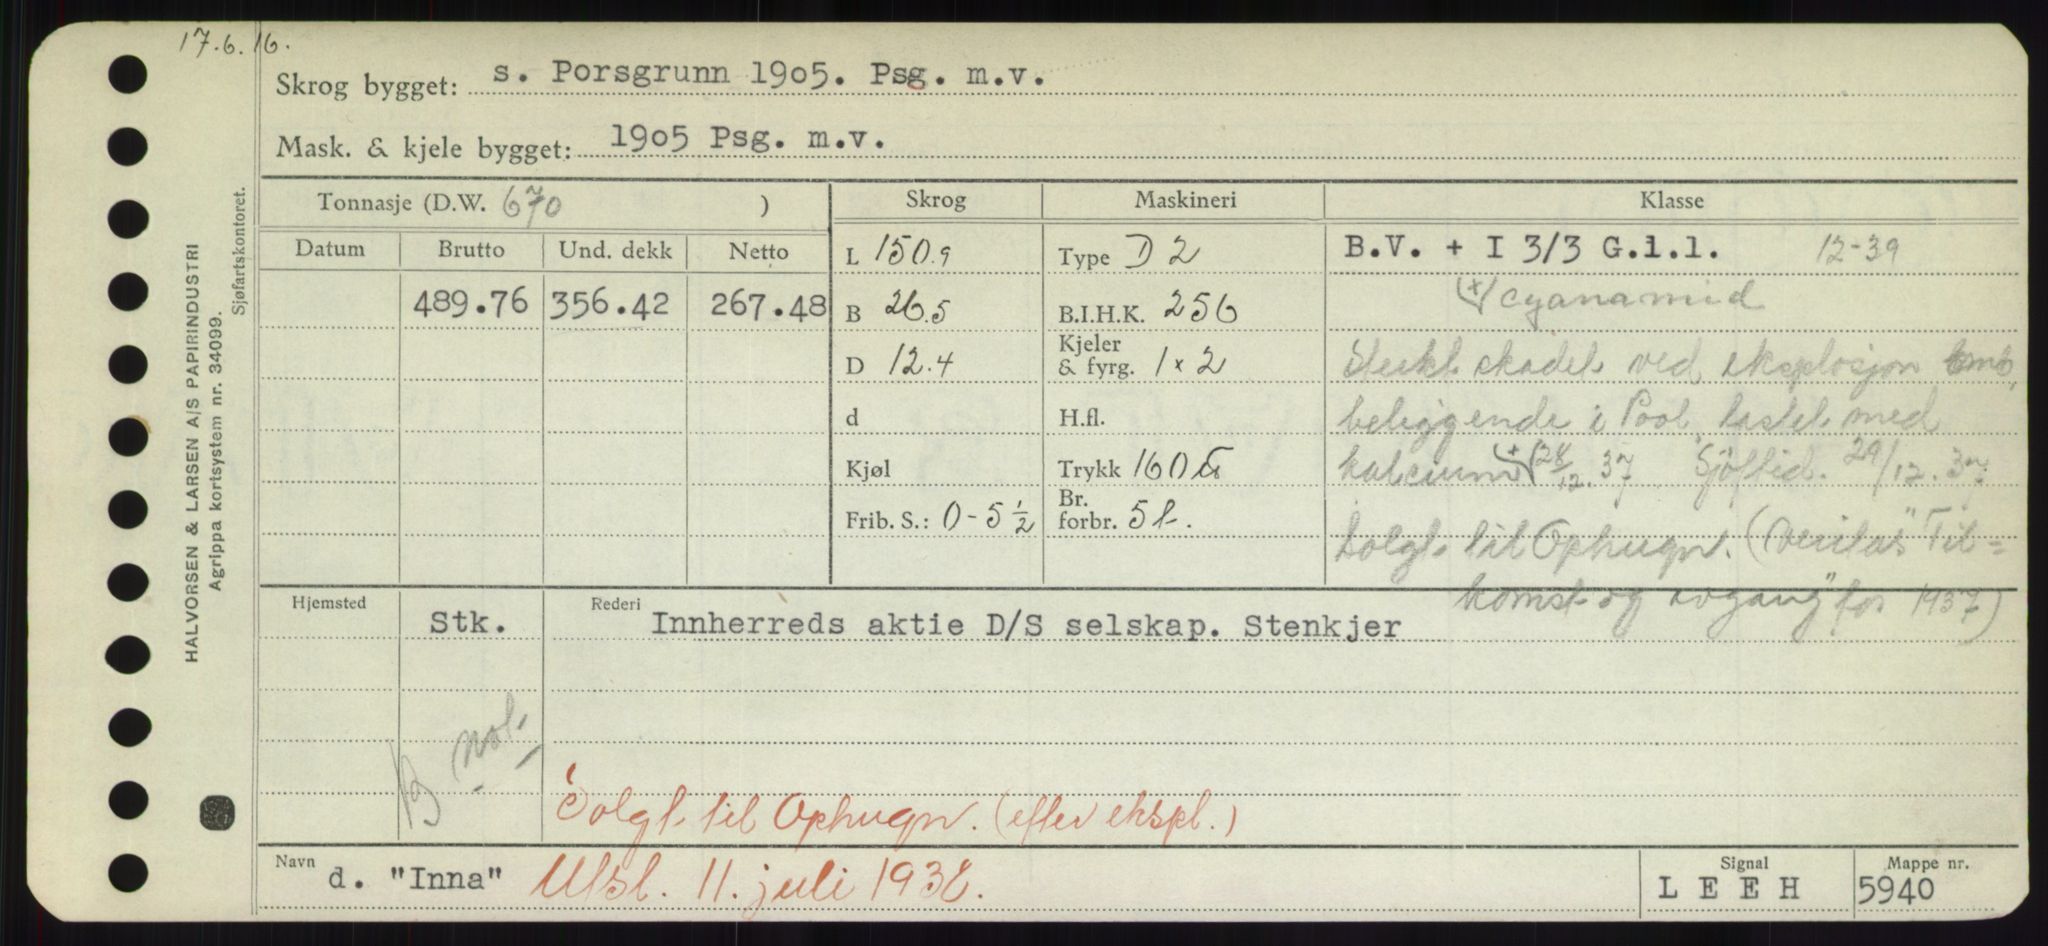 17.6.16.
Skrog bygget: s. Porsgrunn 1905. Psg. m.v.
Mask. & kjele bygget: 1905 Psg. m.v.
Tonnasje (D.W. 670 )
Skrog
Maskineri
Klasse
Datum Brutto Und. dekk Netto
489.76 356.42 267.48
L 150.9
B 26.5
D 12.4
d
Kjøl
Frib. S.: 0-5 1/2
Type D 2
B.I.H.K. 256
Kjeler
& fyrg. 1 x 2
H.fl.
Trykk 160
Br.
forbr. 5 t.
B.V. + I 3/3 G.i.l. 12-39
(+) cyanamid
Sterkt skadet ved eksplosjon omb.
beliggende i Pool, lastet med
kalcium + (28/12.37 "Sjöftid. 29/12.37
Solgt til Ophugn. (Veritas" Til-
komst og avgang" for 1937)
Hjemsted Rederi
Stk. Innherreds aktie D/S selskap. Stenkjer
B not.
Solgt til Ophugn. (efter ekspl.)
Navn d. "Inna" Utsl. 11. juli 1938.
Signal
L E E H
Mappe nr.
5940
HALVORSEN & LARSEN A/S PAPIRINDUSTRI
Agrippa kortsystem nr. 34099.
Sjøfartskontoret.